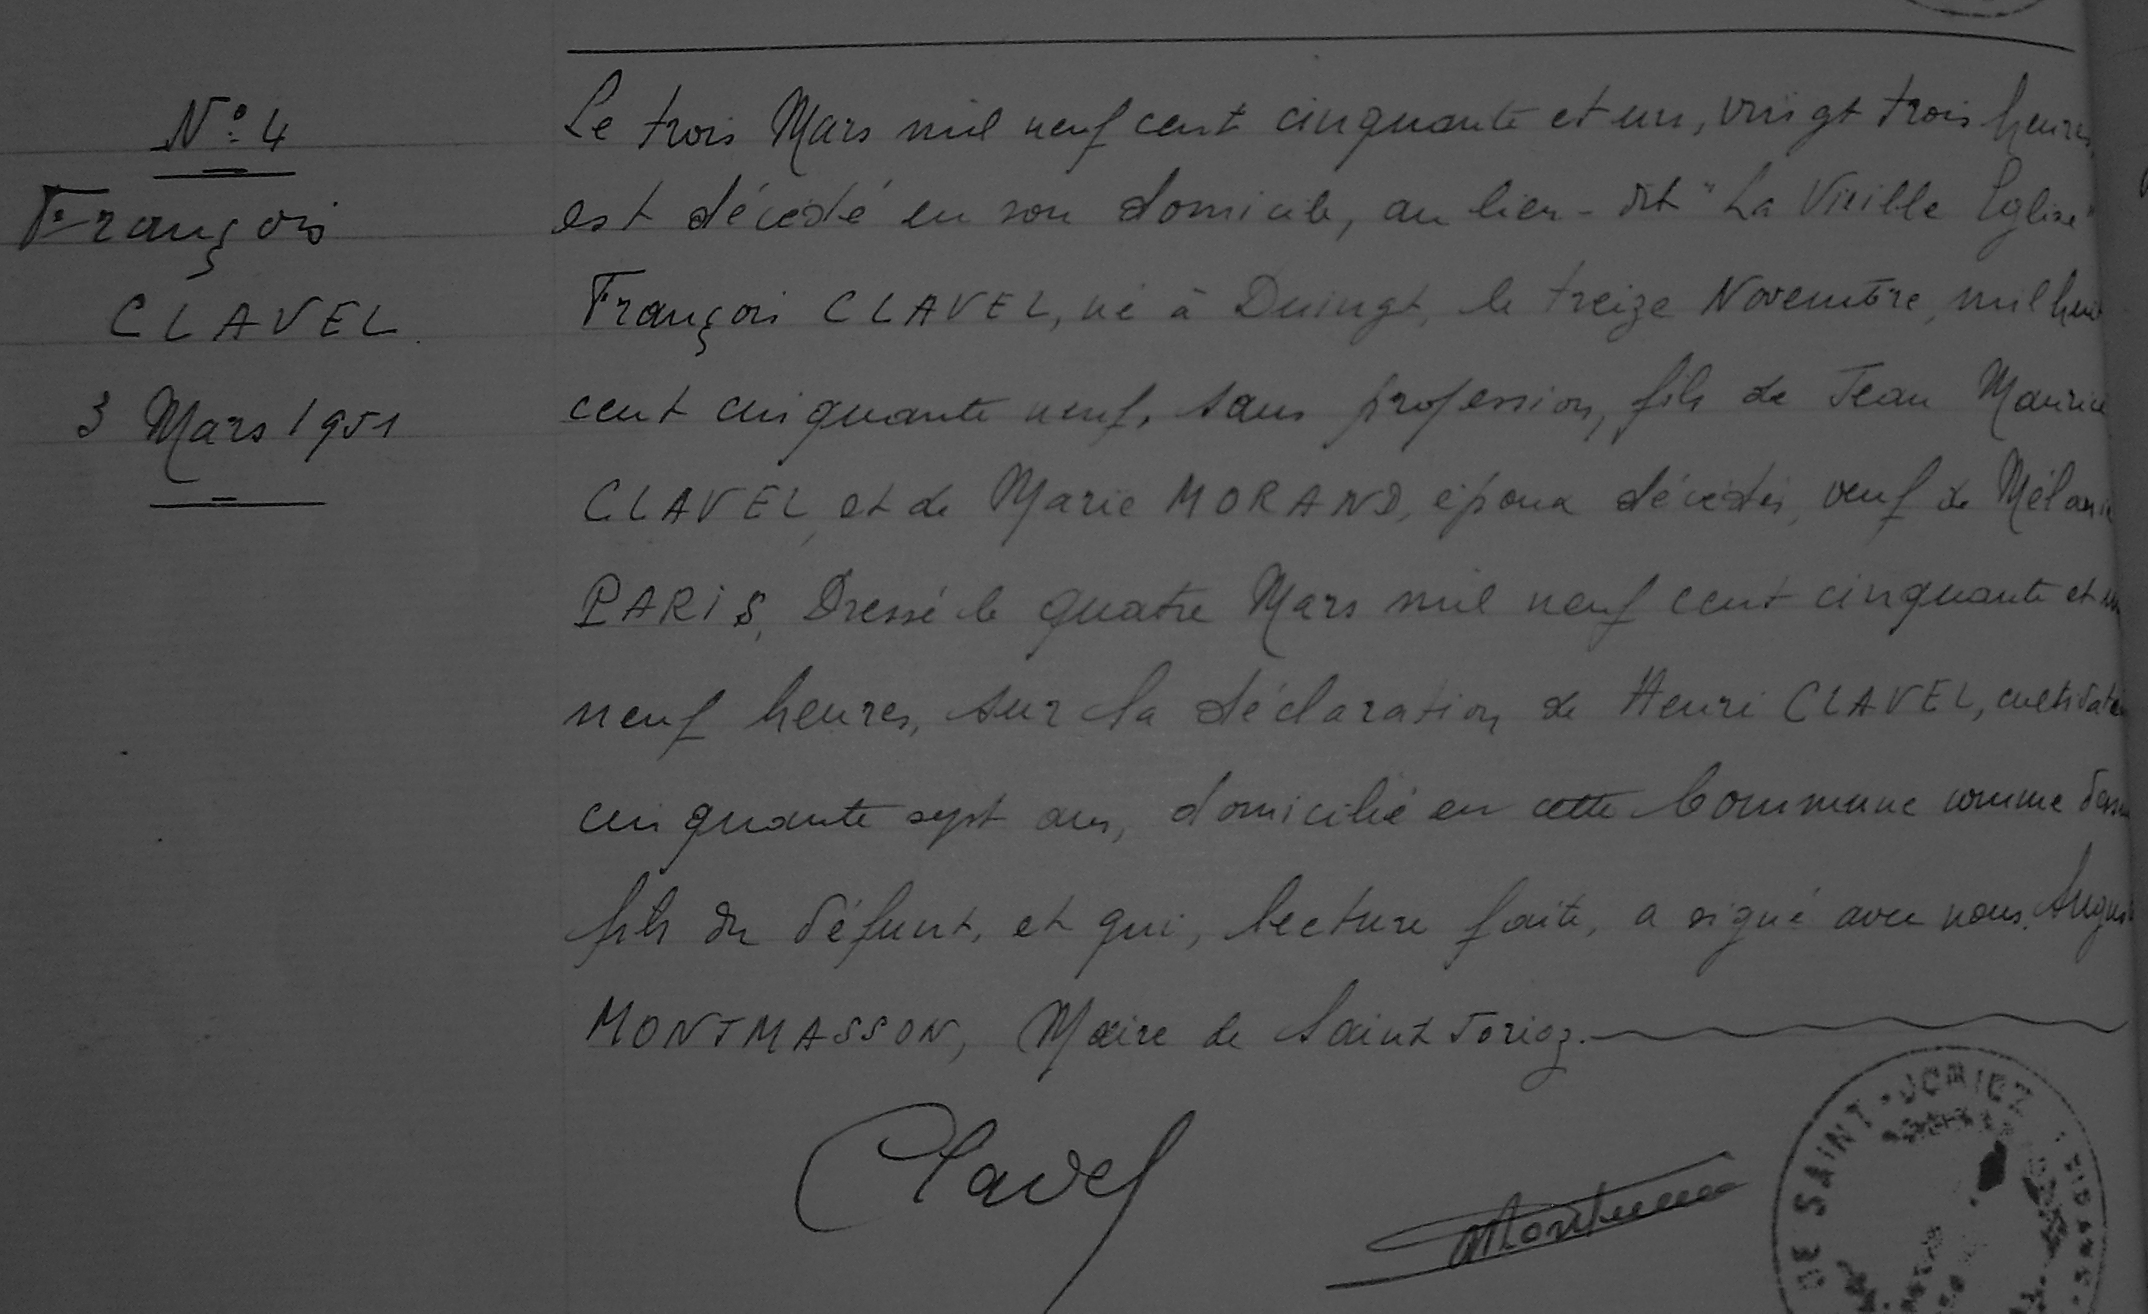 N° 4
François
CLAVEL
3 Mars 1951
Le trois Mars mil neuf cent cinquante et un, vingt trois heures,
est décédé en son domicile, au lieu-dit "La Vieille Eglise"
François CLAVEL, né à Duingt, le treize Novembre, mil huit
cent cinquante neuf, sans profession, fils de Jean Maurice
CLAVEL, et de Marie MORAND, époux décédés, veuf de Mélanie
PARIS. Dressé le quatre Mars mil neuf cent cinquante et un
neuf heures, sur la déclaration de Henri CLAVEL, cultivateur
cinquante sept ans, domicilié en cette Commune comme dessus
fils du défunt, et qui, lecture faite, a signé avec nous,
MONTMASSON, Maire de Saint Jorioz.
Clavel
DE SAINT-JORIOZ